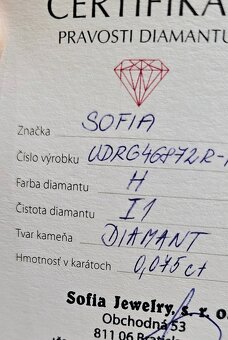 CERTIFIKA
PRAVOSTI DIAMANTU
Značka SOFIA
Číslo výrobku UDRG46872R-
Farba diamantu H
Čistota diamantu I1
Tvar kameňa DIAMANT
Hmotnosť v karátoch 0,075 ct
Sofia Jewelry, s. r. o.
Obchodná 53
811 06 Bratis